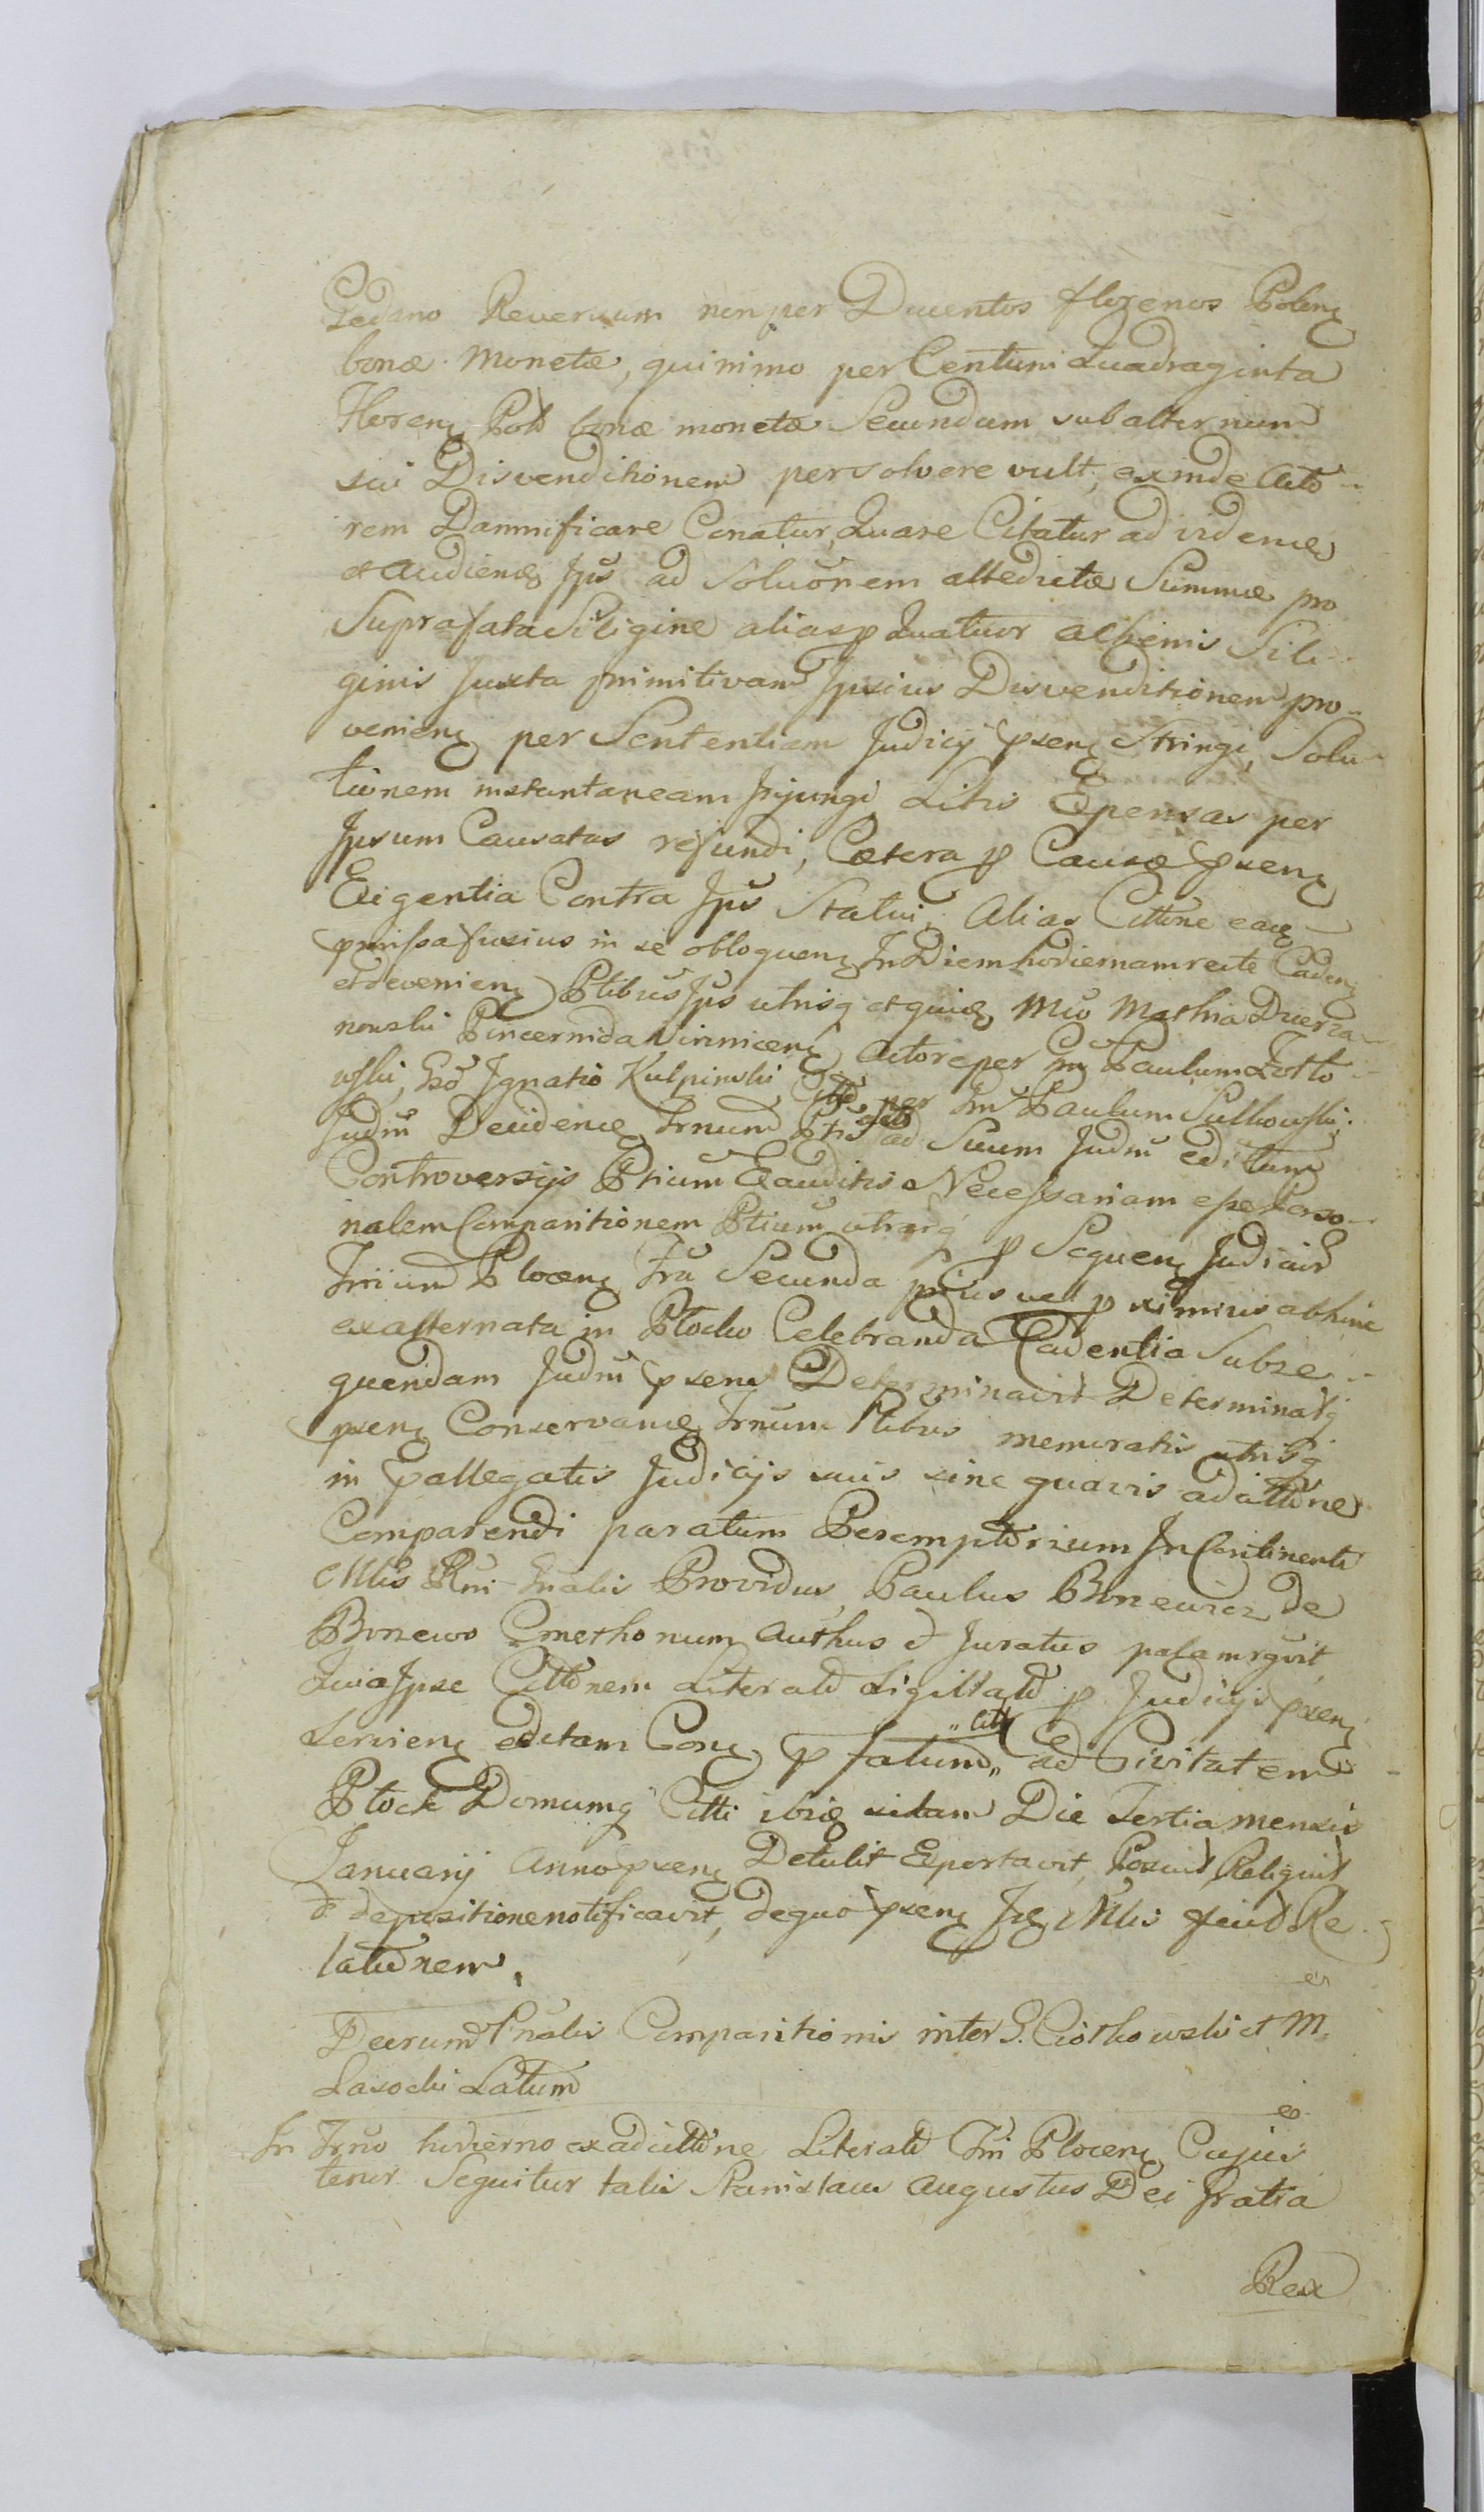 Gedano Reversum non per Ducentos florenos Polonꝫ
bonæ Monetæ, quinimo per Centum Quadraginta
Florenꝫ Pol bonæ monetæ Secundum subalternum
sui Disvenditionem persolvere vult, exinde Acto-
rem Damnificare Conatur, Quare Citatur ad videnꝫ
et Audienꝫ Jps ad Solvōnem attedictæ Summæ pro
Suprafata Siligine alias p Quatuor achtenis Sili-
ginis Juxta primitivam Jpsius Disvenditionem pro-
venienꝫ per Sententiam Judicij pxenꝫ Stringi, Solu-
tionem instantaneam Jnjungi Litis Expensas per
Jpsum Causatas refundi, Cætera p Causæ pxenꝫ
Exigentia Contra Jps Statui, Alias Cittōne eaꝫ
pmissa fusius in se obloquenꝫ Jn Diem hodiernam recte Cadenꝫ
et devenienꝫ Ptibus Jps utrisq et quidꝫ Mco Mathia Dzierza-
nowski Pincernida Vinnicenꝫ Actore per Paulum Zotto-
wski, Gso Jgnatio Kulpinski Citto per Paulum Sulkowski,
Judm Decidenꝫ Trnum Ptis ad Suum Judm editum
Controversijs Ptium Exauditis Necessariam esse Perso-
nalem Comparitionem Ptium utrarq p Sequenꝫ Judicior
Trrium Plocenꝫ Fra Secunda prius vel p ximius abhinc
exalternata in Plocko Celebranda Cadentia Subse-
quendam Judm pxens Determinavit Determinatq
pxenꝫ Conservanꝫ Trnum Ptibus memoratis utrisq
in pallegatis Judicijs suis sine quavis adcittōne
Comparendi paratum Peremptorium Jn Continenti
Mtis Rni Gnalis Providus Paulus Bonewicz de
Bonewo Cmethonum Authus et Juratus palam rgvit
Quia Jpse Cittōnem Literalē Sigillatā p Judicijs pxenꝫ
Servienꝫ editam Conꝫ p fatum „Citt„ ad Civitatem
Plock Domumq Citti ibiꝫ sitam Die Tertia mensis
Januarij Anno pxenꝫ Detulit Exportavit, Posuit, Reliquit
et depositione notificavit, de quo pxenꝫ Mtis fecit Re-
latōnem.
Decrum Psnalis Comparitionis inter G. Ciotkowski et M.
Lasocki Latum
Jn Trno hodierno ex adcittōne Literalē Trri Plocenꝫ Cujus
tenor Sequitur talis Stanislaus Augustus Dei Gratia
Rex